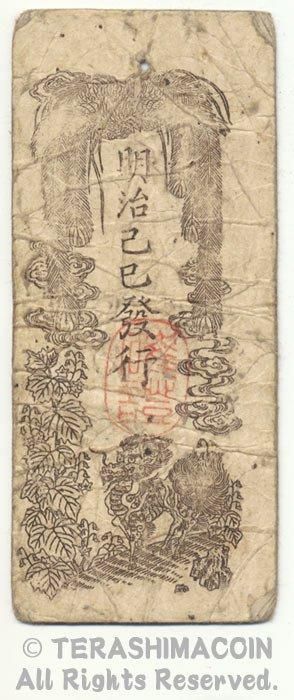 明治己巳發行
© TERASHIMACOIN
All Rights Reserved.